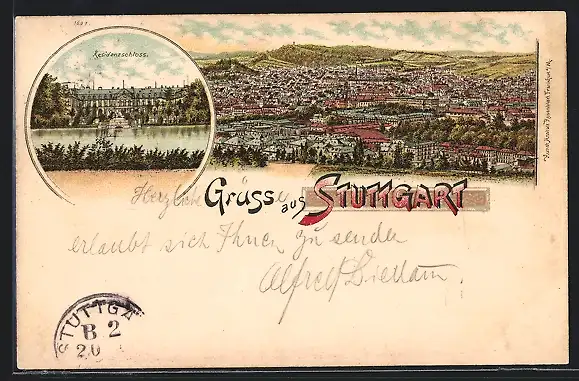 1697.
Residenzschloss.
Herzliche Gruss aus STUTTGART
erlaubt sich Ihnen zu senden
Alfred
STUTTGA
B 2
20